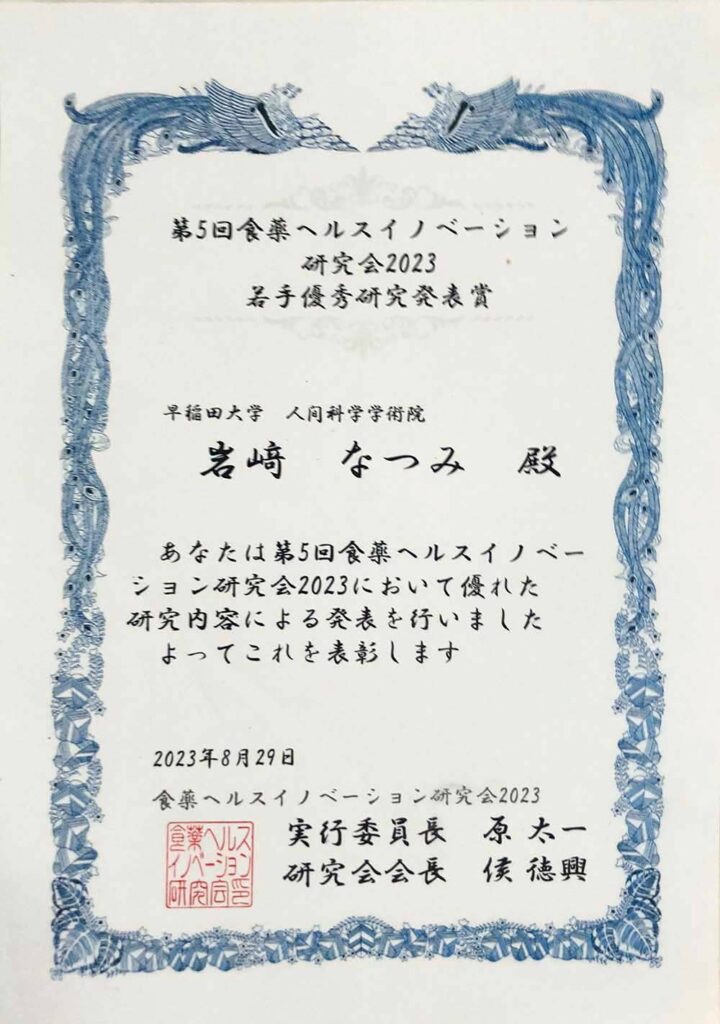 第5回食薬ヘルスイノベーション
研究会2023
若手優秀研究発表賞
早稲田大学　人间科学学術院
岩﨑　なつみ　殿
あなたは第5回食薬ヘルスイノベー
ション研究会2023において優れた
研究内容による発表を行いました
よってこれを表彰します
2023年8月29日
食薬ヘルスイノベーション研究会2023
実行委員長　原 太一
研究会会長　侯 德興
食薬ヘルス
イノベーション
研究会印